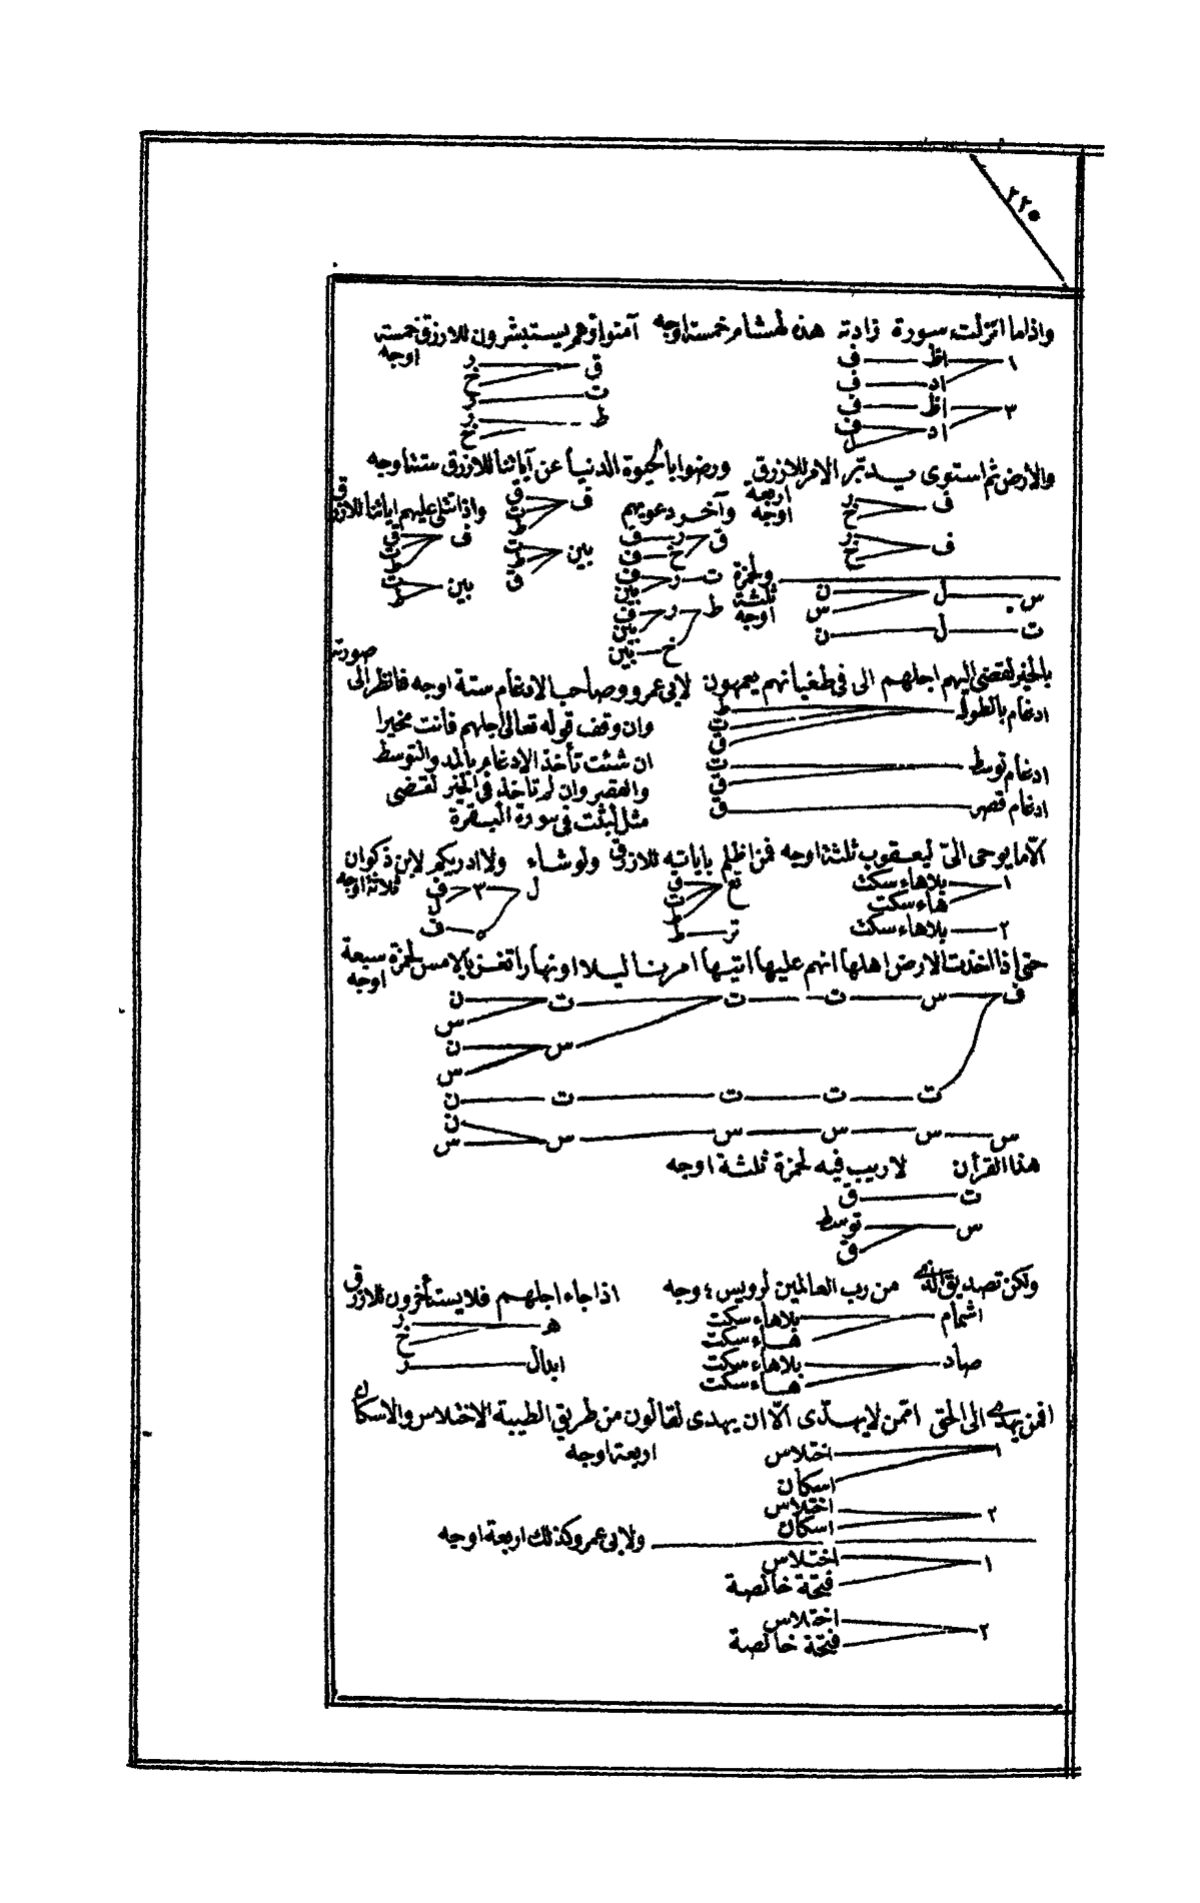 ٢٢٥
واذا ما انزلت سورة زادته هذه لهشام خمسة اوجه آمنوا وهم يستبشرون للازرق خمسة اوجه
١ اظ ف ق ر
خ
اد ف ت ر
٣ اظ ف ط ر
خ
اد ف
ل
والارض ثم استوى يدبر الامر للازرق اربعة اوجه ورضوا بالحيوة الدنيا عن آياتنا للازرق ستة اوجه
ف ر
خ
ف ر
خ
ف ق
ت
ط
بين ت
ط
ق
وآخر دعويهم
ق ر ق
خ ف
ت ر ف
بين
ط ر ف
بين
خ بين
واذا تتلى عليهم اياتنا للازرق
ف ق
ت
ط
بين ت
ط
ولحمزة ثلثة اوجه
س ل ن
س
ت ل ن
بالخير لقضى اليهم اجلهم الى فى طغيانهم يعمهون لابى عمرو وصاحب الادغام ستة اوجه فانظر الى صورته
ادغام بالطول ط
ت
ق
ادغام توسط ت
ق
ادغام قصر ق
وان وقف قوله تعالى اجلهم فانت مخيرا
ان شئت تأخذ الادغام بالمد والتوسط
والقصر وان لم تأخذ فى الخير لقضى
مثل لبثت فى سورة البقرة
الا ما يوحى الىّ ليعقوب ثلثة اوجه فمن اظلم باياته للازرق ولو شاء ولا ادريكم لابن ذكوان ثلاثة اوجه
١ بلاهاء سكت
هاء سكت
٢ بلاهاء سكت
تغ ق
ت
ط
تر ط
ل ٣ ف
ل
ف
حتى اذا اخذت الارض اهلها انهم عليها اتيها امرنا ليلا او نهارا تغن بالامس لحمزة سبعة اوجه
ف س ت ت ت ن
س
س ن
س
ت ت ت ت ن
س س س س س ن
س
هذا القرآن لاريب فيه لحمزة ثلثة اوجه
ت ق
س توسط
ق
ولكن تصديق الذى من رب العالمين لرويس ٤ وجه اذا جاء اجلهم فلا يستأخرون للازرق
اشمام بلاهاء سكت
هاء سكت
صاد بلاهاء سكت
هاء سكت
هـ ر
خ
ابدال ر
افمن يهدى الى الحق امّن لا يهدّى الاّ ان يهدى لقالون من طريق الطيبة الاختلاس والاسكان
اربعة اوجه
١ اختلاس
اسكان
٢ اختلاس
اسكان
ولابى عمرو كذلك اربعة اوجه
١ اختلاس
فتحة خالصة
٢ اختلاس
فتحة خالصة